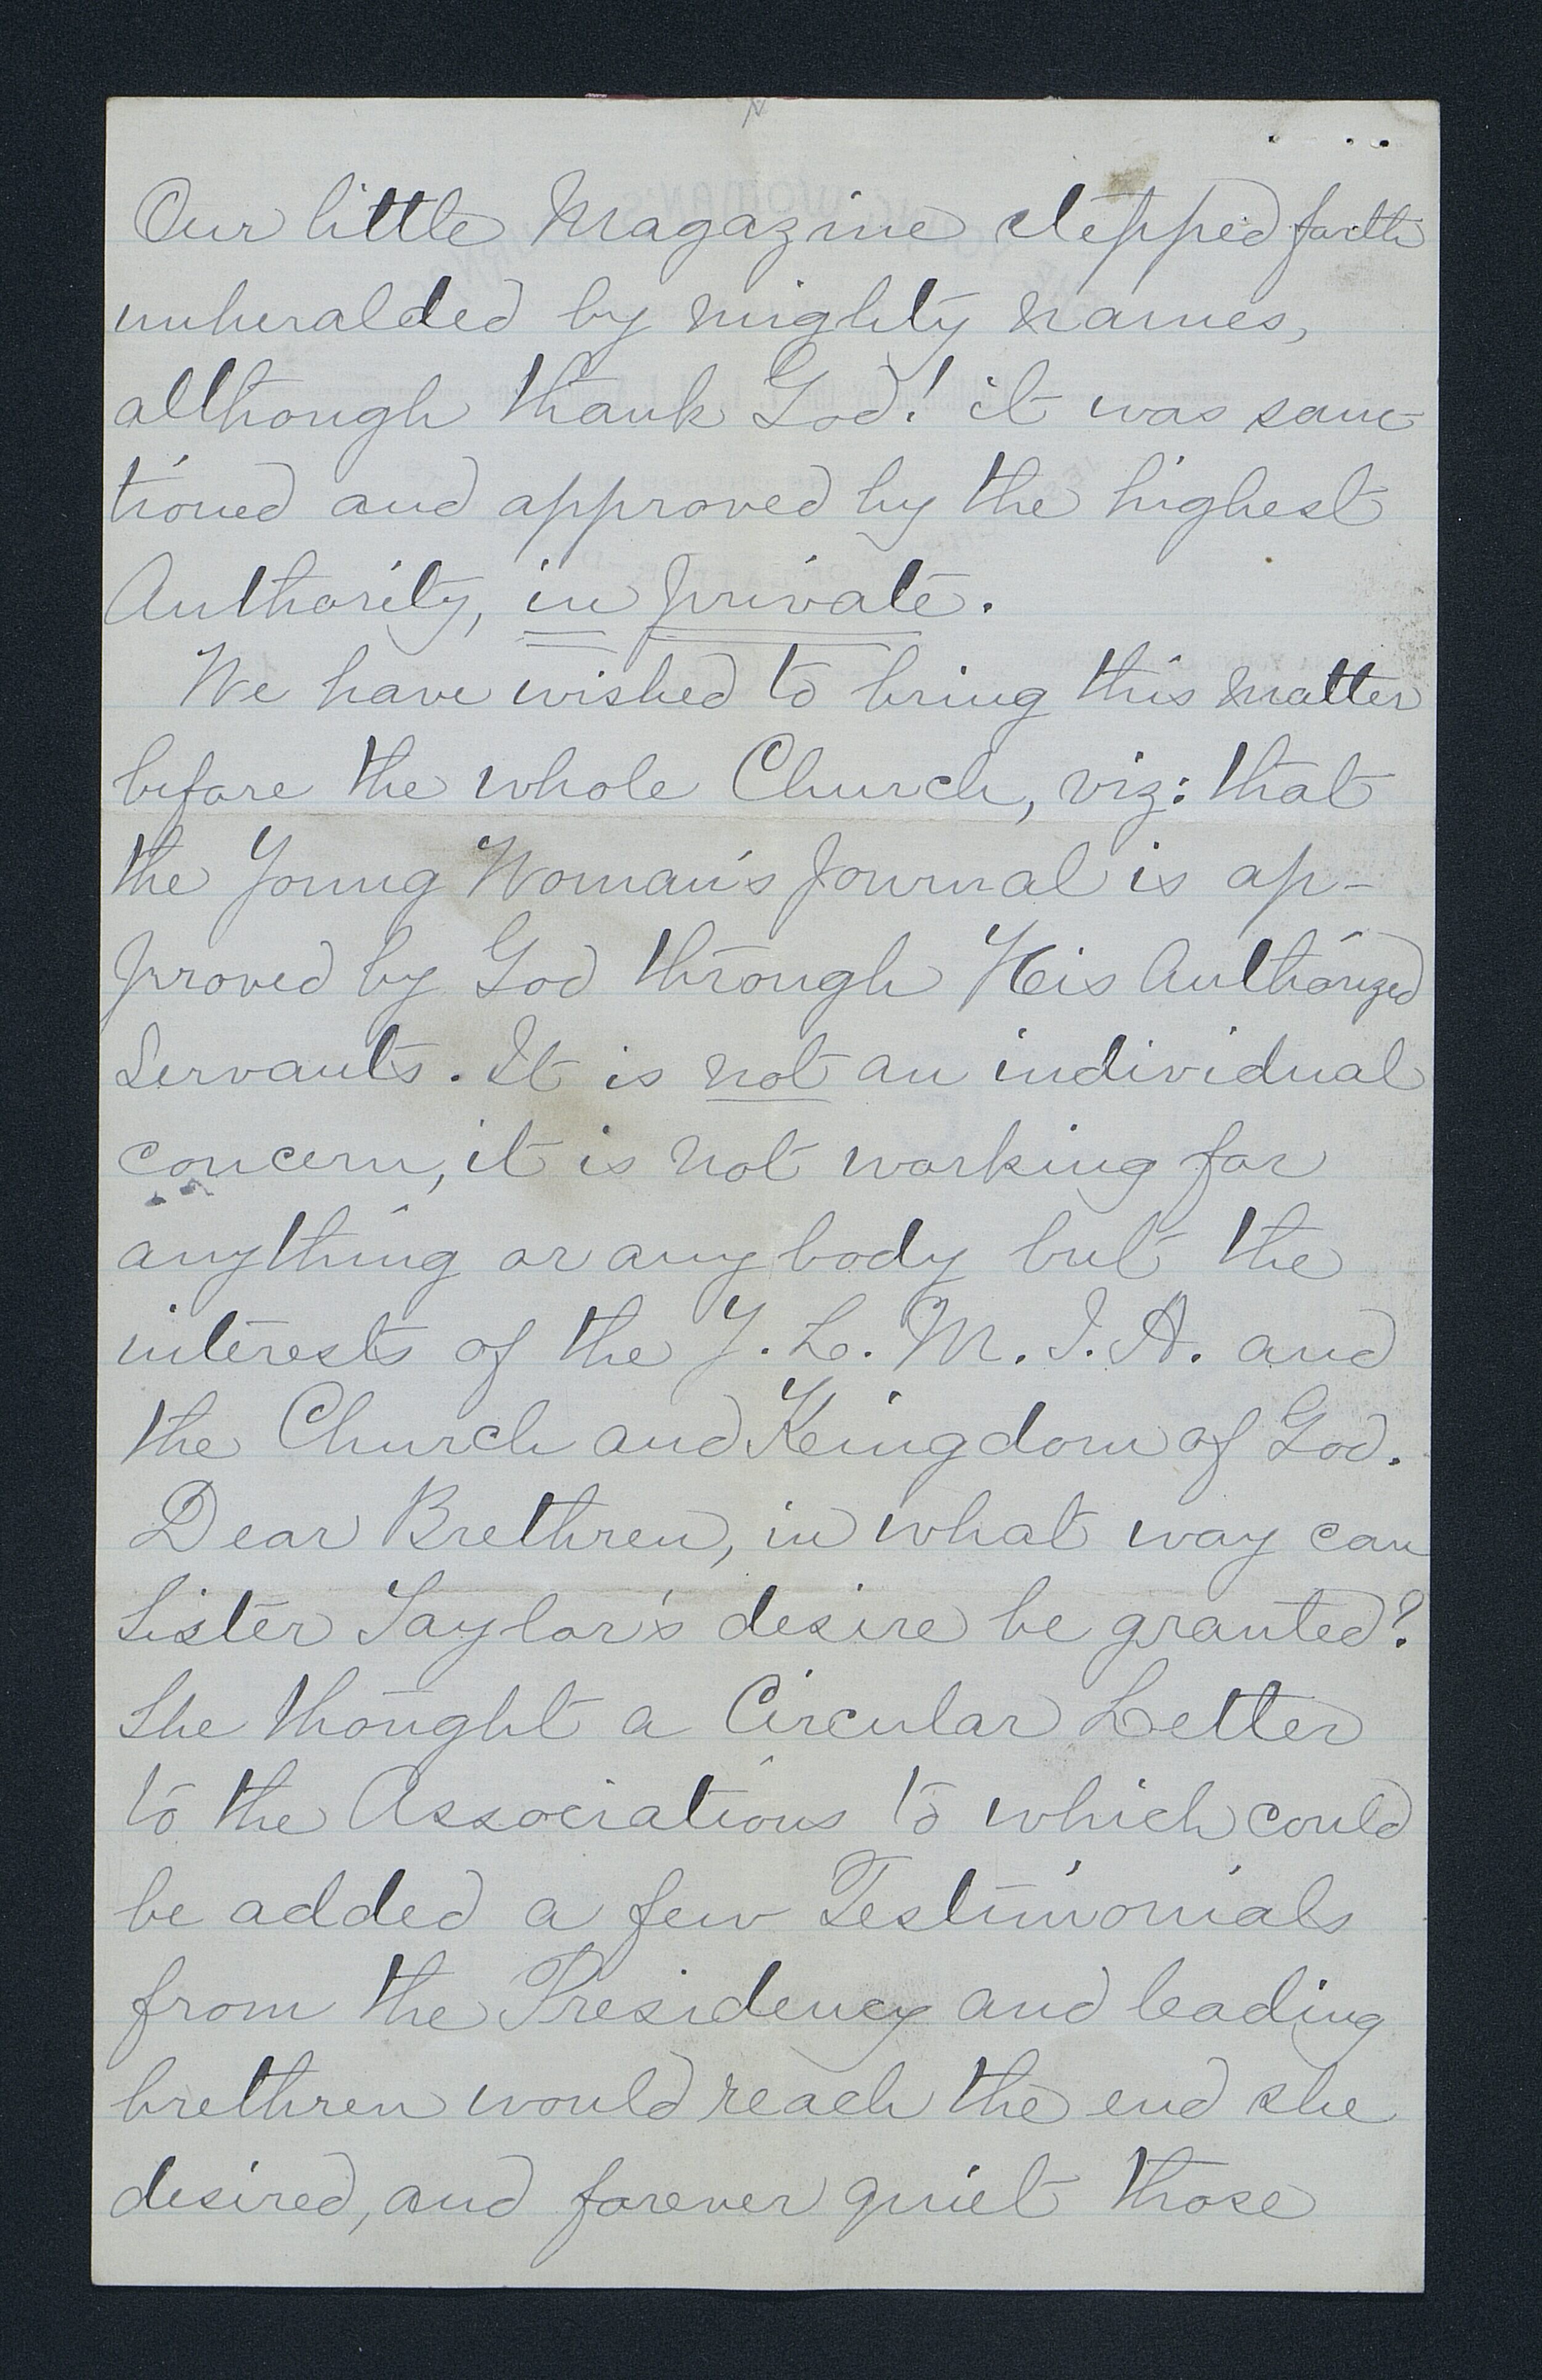 Our little Magazine stepped forth
unheralded by mighty names,
although thank God! it was sanc-
tioned and approved by the highest
Authority, in private.
We have wished to bring this matter
before the whole Church, viz: that
the Young Woman's Journal is ap-
proved by God through His Authorized
Servants. It is not an individual
concern, it is not working for
anything or any body but the
interests of the Y. L. M. I. A. and
the Church and Kingdom of God.
Dear Brethren, in what way can
Sister Taylor's desire be granted?
She thought a Circular Letter
to the Associations to which could
be added a few Testimonials
from the Presidency and leading
brethren would reach the end she
desired, and forever quiet those